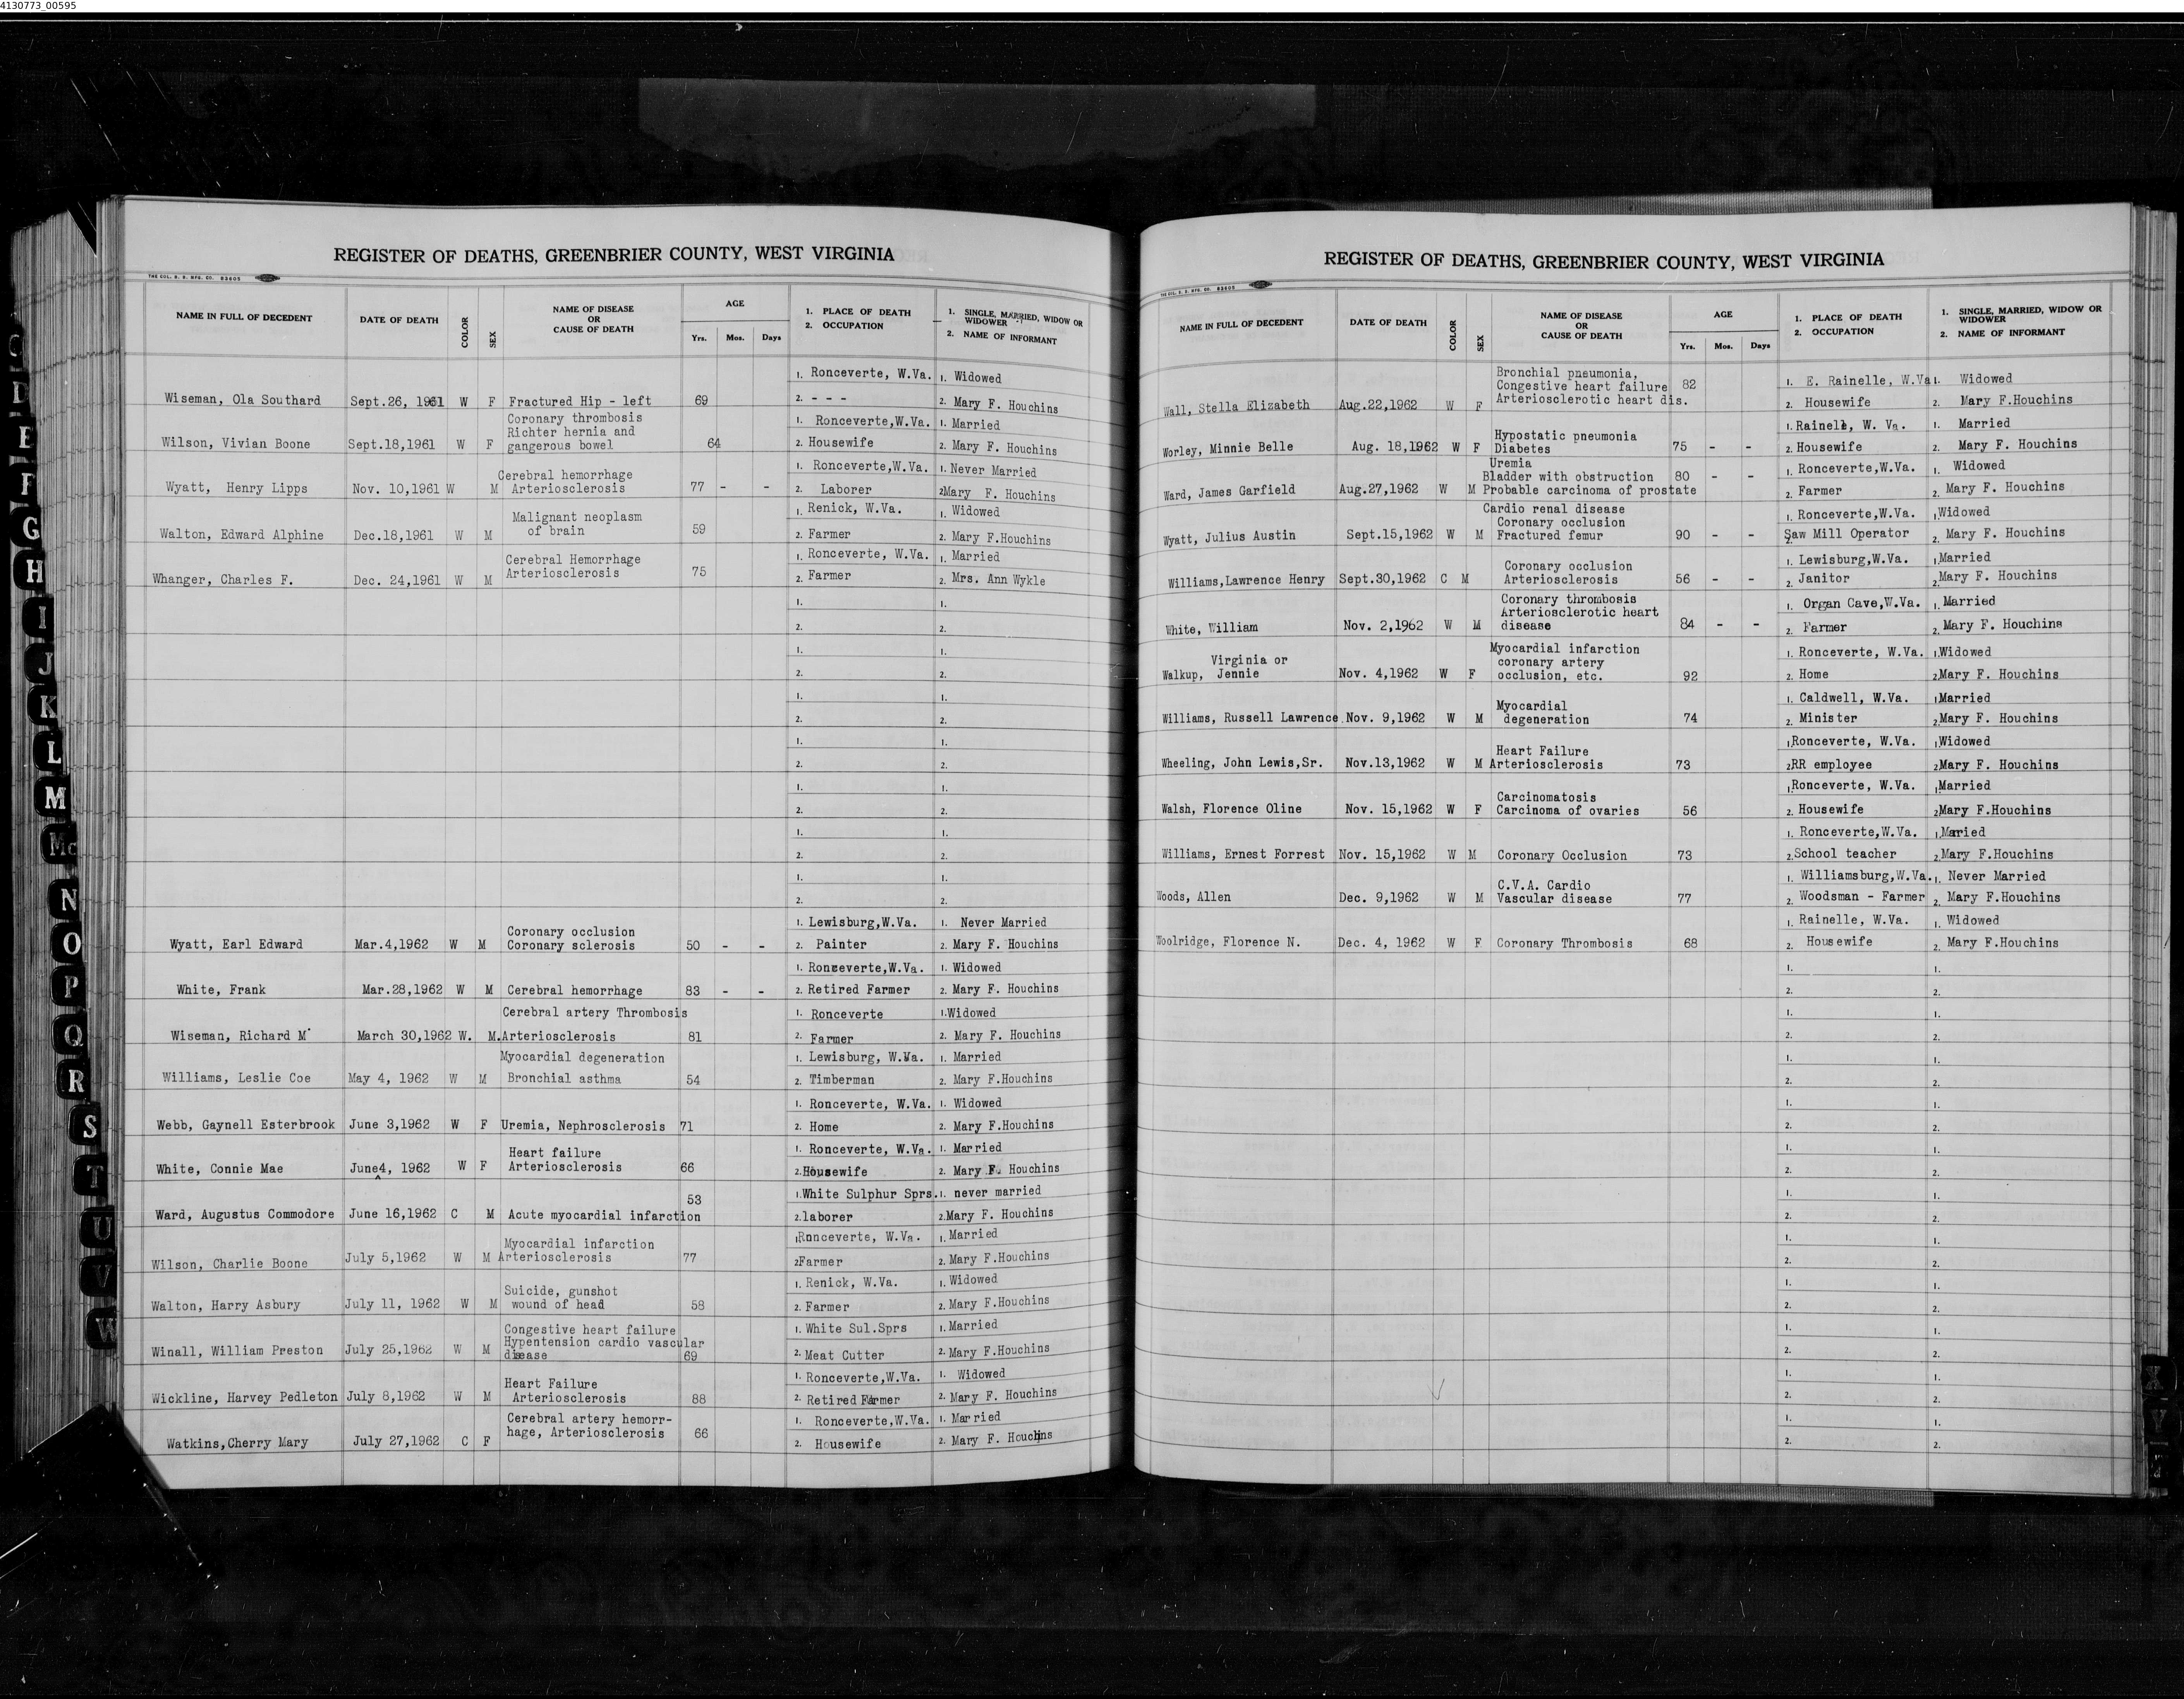 4130773_00595
REGISTER OF DEATHS, GREENBRIER COUNTY, WEST VIRGINIA
NAME IN FULL OF DECEDENT DATE OF DEATH COLOR SEX NAME OF DISEASE OR CAUSE OF DEATH AGE Yrs. Mos. Days 1. PLACE OF DEATH 2. OCCUPATION 1. SINGLE, MARRIED, WIDOW OR WIDOWER 2. NAME OF INFORMANT
1. Ronceverte, W.Va. 1. Widowed
Wiseman, Ola Southard Sept.26, 1961 W F Fractured Hip - left 69 2. - - - 2. Mary F. Houchins
Coronary thrombosis 1. Ronceverte,W.Va. 1. Married
Richter hernia and
Wilson, Vivian Boone Sept.18,1961 W F gangerous bowel 64 2. Housewife 2. Mary F. Houchins
Cerebral hemorrhage 1. Ronceverte,W.Va. 1. Never Married
Wyatt, Henry Lipps Nov. 10,1961 W M Arteriosclerosis 77 - - 2. Laborer 2Mary F. Houchins
Malignant neoplasm 1. Renick, W.Va. 1. Widowed
Walton, Edward Alphine Dec.18,1961 W M of brain 59 2. Farmer 2. Mary F.Houchins
Cerebral Hemorrhage 1. Ronceverte, W.Va. 1. Married
Whanger, Charles F. Dec. 24,1961 W M Arteriosclerosis 75 2. Farmer 2. Mrs. Ann Wykle
1. 1.
2. 2.
1. 1.
2. 2.
1. 1.
2. 2.
1. 1.
2. 2.
1. 1.
2. 2.
1. 1.
2. 2.
1. 1.
2. 2.
Coronary occlusion 1. Lewisburg,W.Va. 1. Never Married
Wyatt, Earl Edward Mar.4,1962 W M Coronary sclerosis 50 - - 2. Painter 2. Mary F. Houchins
1. Ronceverte,W.Va. 1. Widowed
White, Frank Mar.28,1962 W M Cerebral hemorrhage 83 - - 2. Retired Farmer 2. Mary F. Houchins
Cerebral artery Thrombosis 1. Ronceverte 1.Widowed
Wiseman, Richard M. March 30,1962 W. M.Arteriosclerosis 81 2. Farmer 2. Mary F. Houchins
Myocardial degeneration 1. Lewisburg, W.Va. 1. Married
Williams, Leslie Coe May 4, 1962 W M Bronchial asthma 54 2. Timberman 2. Mary F.Houchins
1. Ronceverte, W.Va. 1. Widowed
Webb, Gaynell Esterbrook June 3,1962 W F Uremia, Nephrosclerosis 71 2. Home 2. Mary F.Houchins
Heart failure 1. Ronceverte, W.Va. 1. Married
White, Connie Mae June4, 1962 W F Arteriosclerosis 66 2.Housewife 2. Mary F. Houchins
53 1.White Sulphur Sprs. 1. never married
Ward, Augustus Commodore June 16,1962 C M Acute myocardial infarction 2.laborer 2.Mary F. Houchins
Myocardial infarction 1Ronceverte, W.Va. 1. Married
Wilson, Charlie Boone July 5,1962 W M Arteriosclerosis 77 2Farmer 2. Mary F.Houchins
Suicide, gunshot 1. Renick, W.Va. 1. Widowed
Walton, Harry Asbury July 11, 1962 W M wound of head 58 2. Farmer 2. Mary F.Houchins
Congestive heart failure 1. White Sul.Sprs 1. Married
Hypentension cardio vascular
Winall, William Preston July 25,1962 W M disease 69 2. Meat Cutter 2. Mary F.Houchins
Heart Failure 1. Ronceverte,W.Va. 1. Widowed
Wickline, Harvey Pedleton July 8,1962 W M Arteriosclerosis 88 2. Retired Farmer 2. Mary F. Houchins
Cerebral artery hemorr- 1. Ronceverte,W.Va. 1. Married
hage, Arteriosclerosis 66
Watkins,Cherry Mary July 27,1962 C F 2. Housewife 2. Mary F. Houchins
REGISTER OF DEATHS, GREENBRIER COUNTY, WEST VIRGINIA
NAME IN FULL OF DECEDENT DATE OF DEATH COLOR SEX NAME OF DISEASE OR CAUSE OF DEATH AGE Yrs. Mos. Days 1. PLACE OF DEATH 2. OCCUPATION 1. SINGLE, MARRIED, WIDOW OR WIDOWER 2. NAME OF INFORMANT
Bronchial pneumonia,
Congestive heart failure 82 1. E. Rainelle, W.Va 1. Widowed
Wall, Stella Elizabeth Aug.22,1962 W F Arteriosclerotic heart dis. 2. Housewife 2. Mary F.Houchins
1. Rainelle, W. Va. 1. Married
Hypostatic pneumonia
Worley, Minnie Belle Aug. 18,1962 W F Diabetes 75 - - 2. Housewife 2. Mary F. Houchins
Uremia 1. Ronceverte,W.Va. 1. Widowed
Bladder with obstruction 80 - -
Ward, James Garfield Aug.27,1962 W M Probable carcinoma of prostate 2. Farmer 2. Mary F. Houchins
Cardio renal disease 1. Ronceverte,W.Va. 1.Widowed
Coronary occlusion
Wyatt, Julius Austin Sept.15,1962 W M Fractured femur 90 - - 2. Saw Mill Operator 2. Mary F. Houchins
Coronary occlusion 1. Lewisburg,W.Va. 1.Married
Williams,Lawrence Henry Sept.30,1962 C M Arteriosclerosis 56 - - 2. Janitor 2.Mary F. Houchins
Coronary thrombosis 1. Organ Cave,W.Va. 1. Married
Arteriosclerotic heart
White, William Nov. 2,1962 W M disease 84 - - 2. Farmer 2. Mary F. Houchins
Myocardial infarction 1. Ronceverte, W.Va. 1.Widowed
Virginia or coronary artery
Walkup, Jennie Nov. 4,1962 W F occlusion, etc. 92 2. Home 2.Mary F. Houchins
Myocardial 1. Caldwell, W.Va. 1.Married
Williams, Russell Lawrence. Nov. 9,1962 W M degeneration 74 2. Minister 2.Mary F. Houchins
Heart Failure 1.Ronceverte, W.Va. 1.Widowed
Wheeling, John Lewis,Sr. Nov.13,1962 W M Arteriosclerosis 73 2RR employee 2.Mary F. Houchins
Carcinomatosis 1.Ronceverte, W.Va. 1.Married
Walsh, Florence Oline Nov. 15,1962 W F Carcinoma of ovaries 56 2. Housewife 2.Mary F.Houchins
1. Ronceverte,W.Va. 1.Maried
Williams, Ernest Forrest Nov. 15,1962 W M Coronary Occlusion 73 2.School teacher 2.Mary F.Houchins
C.V.A. Cardio 1. Williamsburg,W.Va. 1. Never Married
Woods, Allen Dec. 9,1962 W M Vascular disease 77 2. Woodsman - Farmer 2. Mary F.Houchins
1. Rainelle, W.Va. 1. Widowed
Woolridge, Florence N. Dec. 4, 1962 W F Coronary Thrombosis 68 2. Housewife 2. Mary F.Houchins
1. 1.
2. 2.
1. 1.
2. 2.
1. 1.
2. 2.
1. 1.
2. 2.
1. 1.
2. 2.
1. 1.
2. 2.
1. 1.
2. 2.
1. 1.
2. 2.
1. 1.
2. 2.
1. 1.
2. 2.
1. 1.
2. 2.
D
E
F
G
H
I
J
K
L
M
Mc
N
O
P
Q
R
S
T
U
V
W
X
Y
Z